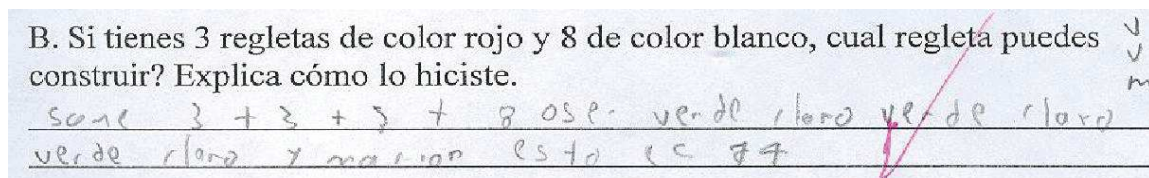 B. Si tienes 3 regletas de color rojo y 8 de color blanco, cual regleta puedes
construir? Explica cómo lo hiciste.
some 3 + 3 + 3 + 8 ose verde claro verde claro
verde claro y marron esto es